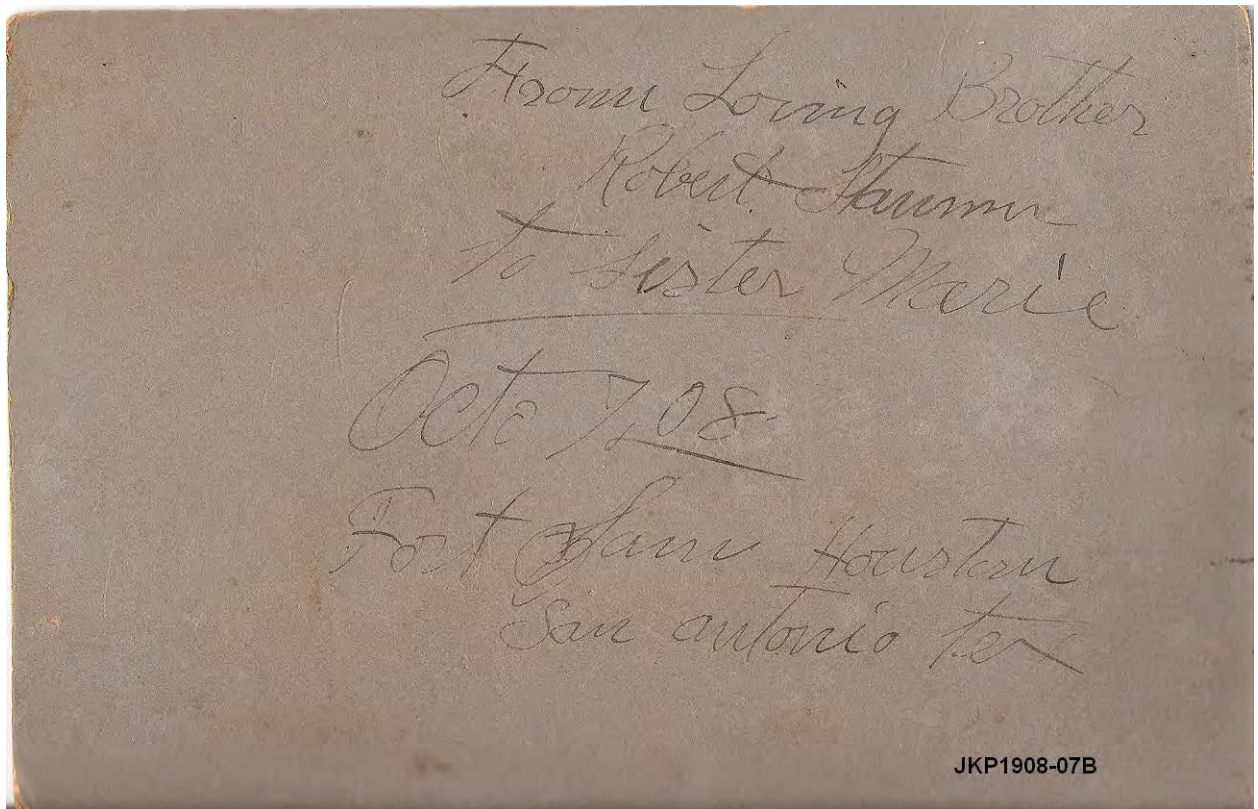 From Loving Brother
Robert
to Sister Marie
Octo 7, 08
Fort Sam Houston
San antonio tex
JKP1908-07B